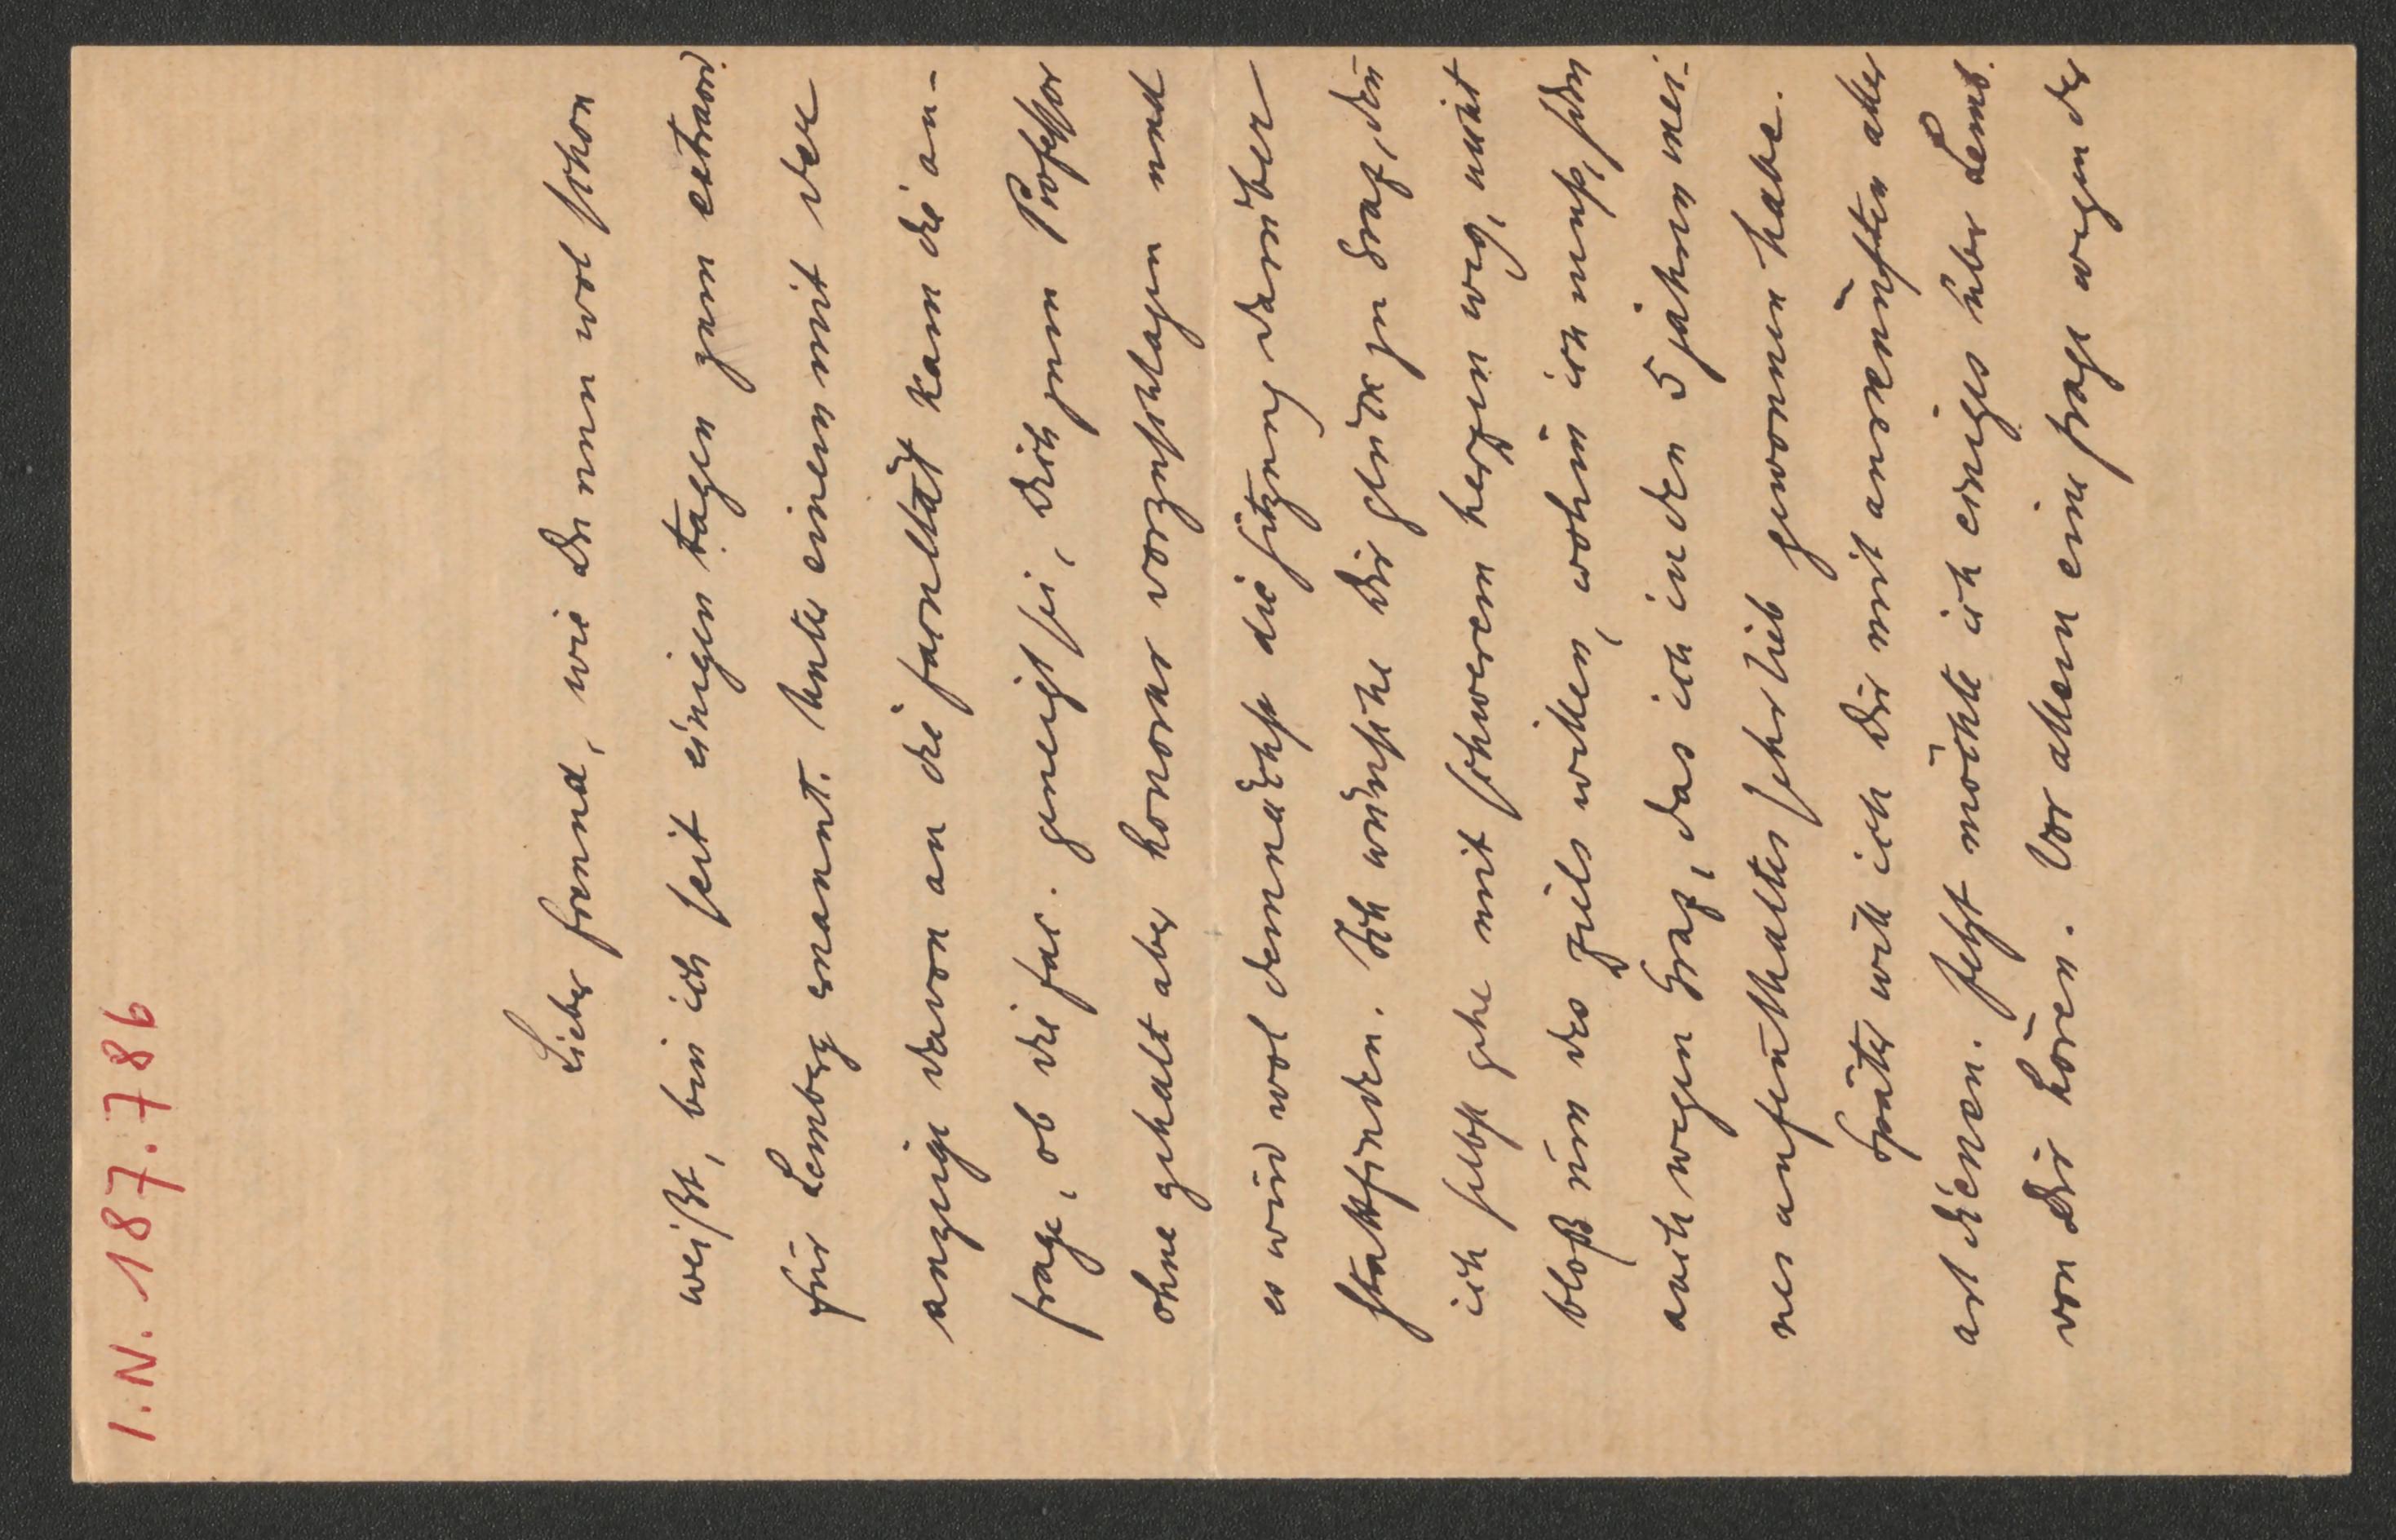 I.N. 187.786
Lieber freund, wie Du nun wol schon
weißt, bin ich seit einigen tagen zum extraord.
für Lemberg ernannt. Unter einem mit der
anzeige davon an die facultät kam die an-
frage, ob die fac. geneigt sei, Dich zum Professor
ohne gehalt aber honorar vorzuschlagen und
es wird wol demnächst die sitzung darüber
stattfinden. Ich wünsche Dir glück zu Graz, den
ich selbst gehe mit schwerem herzen weg, nicht
bloß um des ziels willen, wohin ich muß, sondern
auch wegen Graz, das ich in den 5 jahren mei-
nes aufenthaltes sehr lieb gewonnen habe.
Später will ich Dir mit auskünften aller
art dienen. Jetzt möchte ich einiges über Lemb.
von Dir hören. Vor allem eine frage wegen der